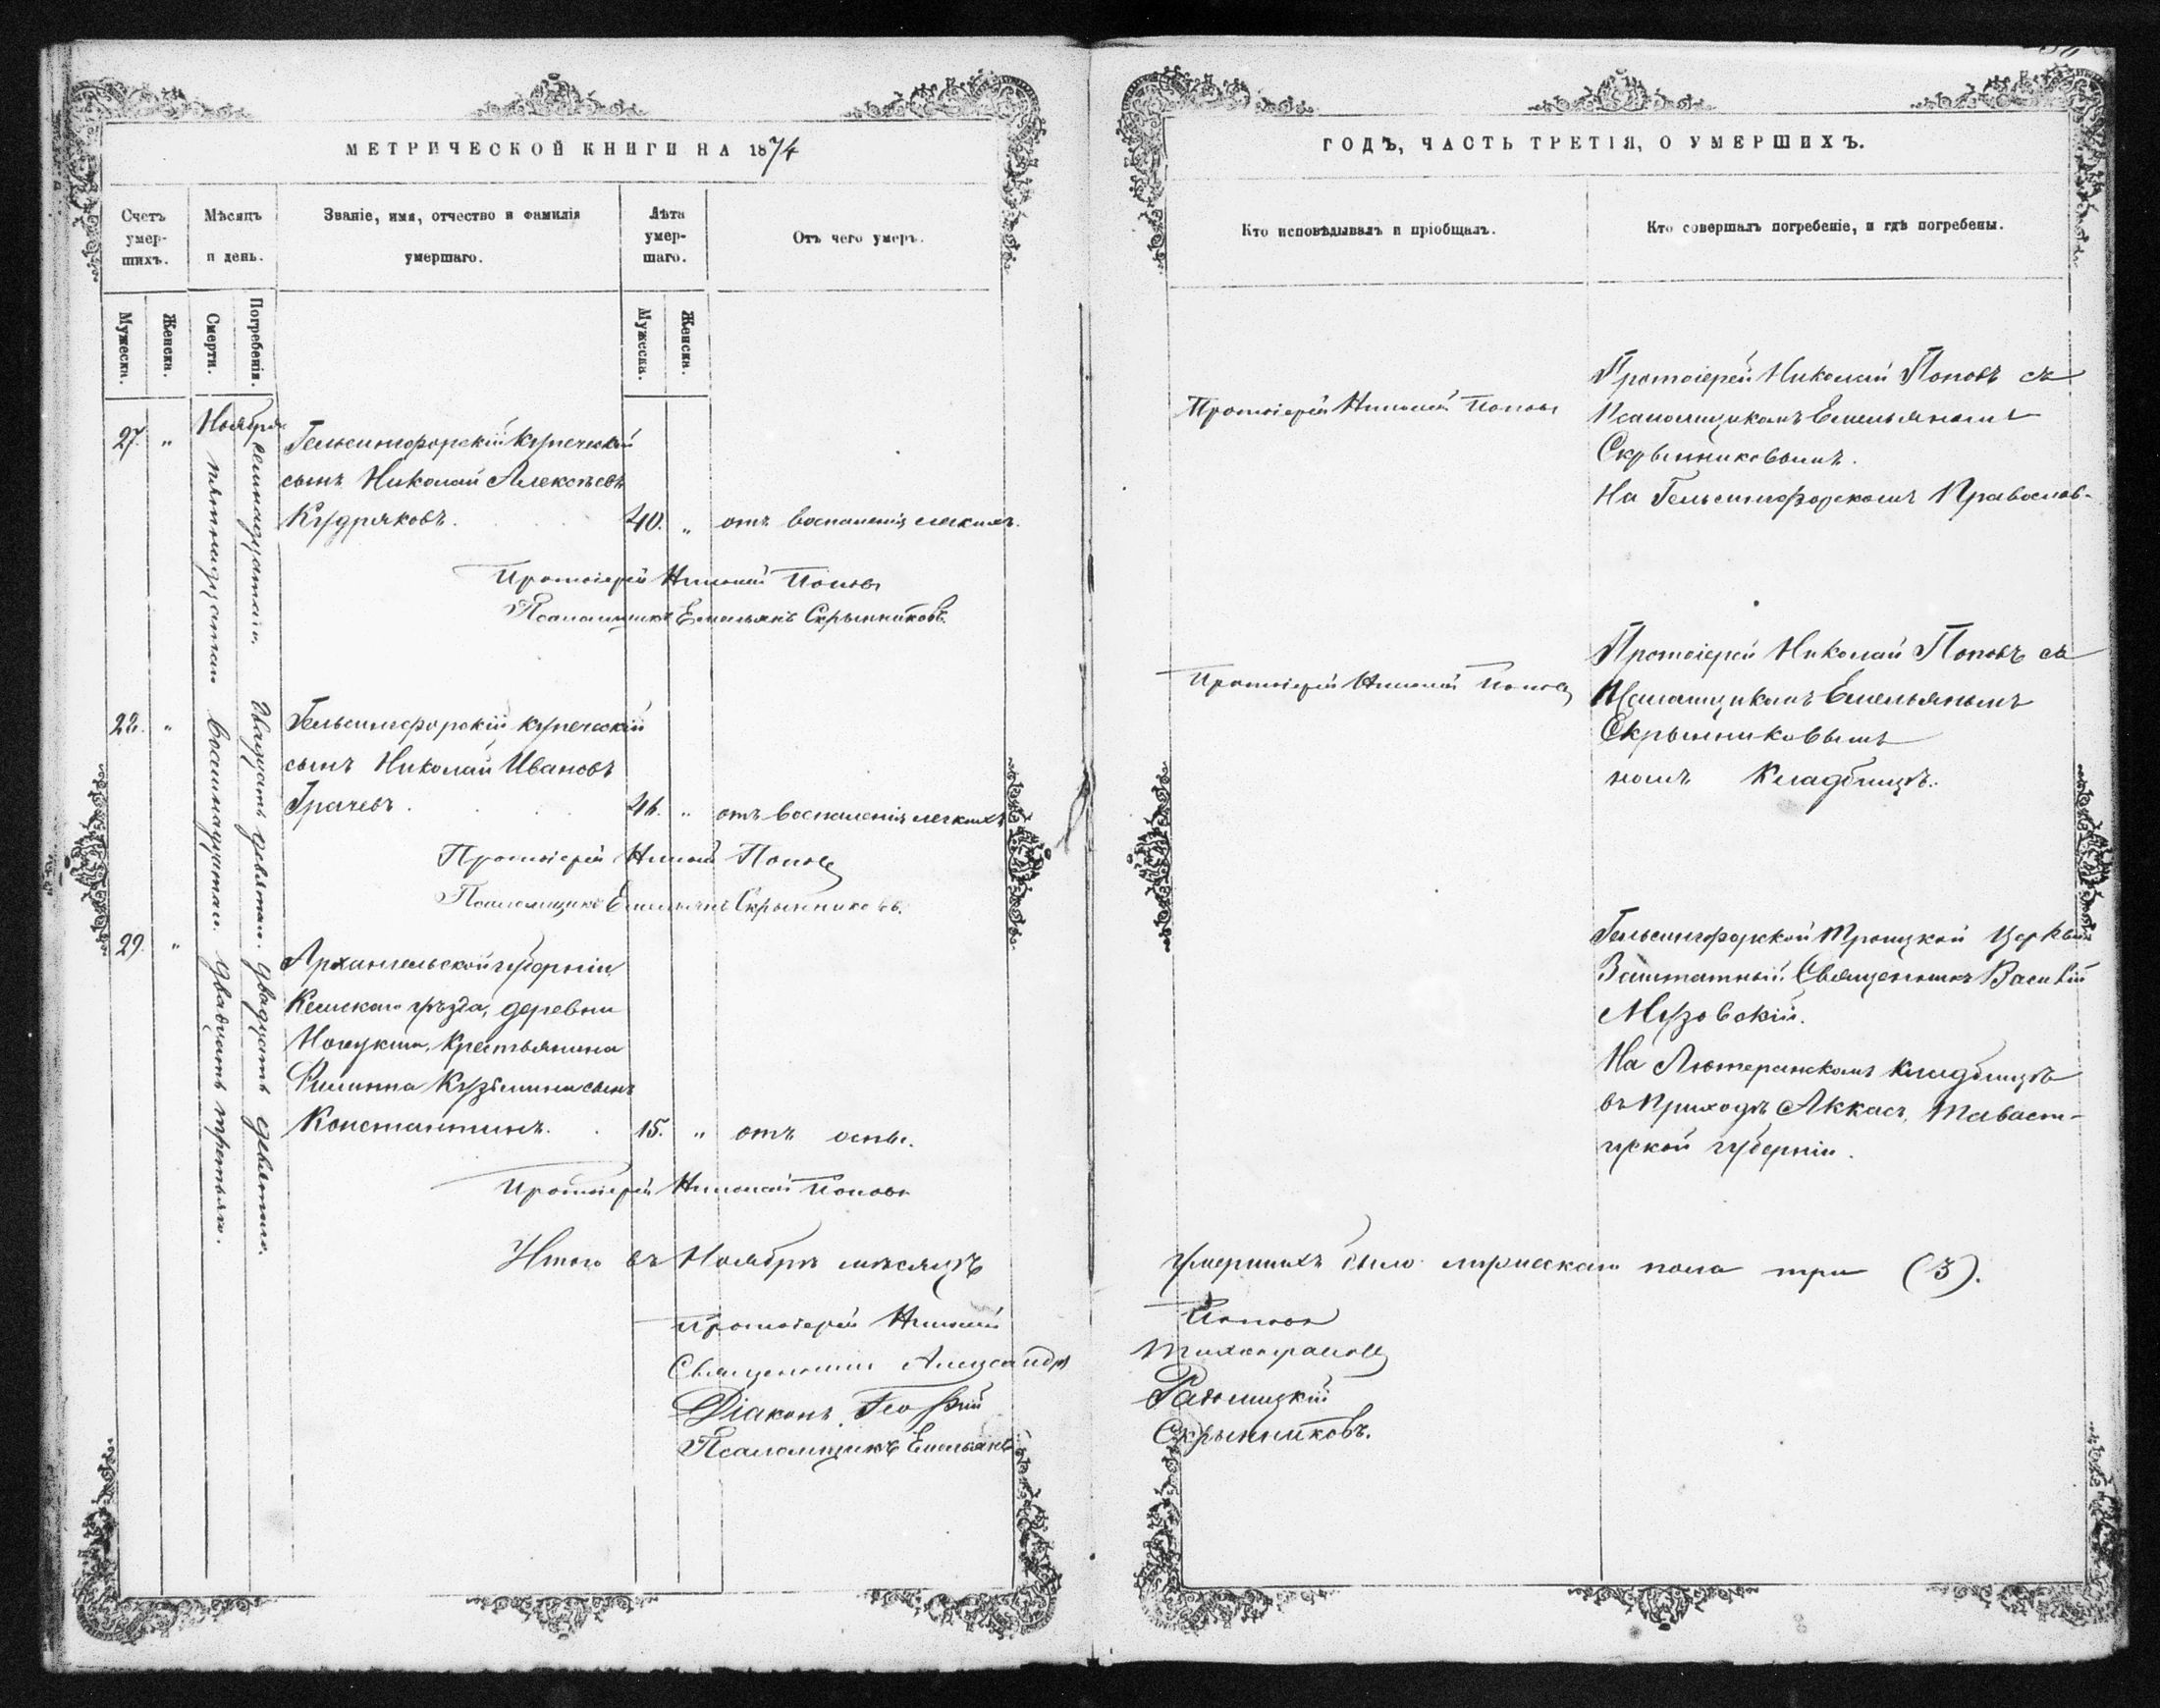 МЕТРИЧЕСКОЙ КНИГИ НА 1874
Счетъ умер-шихъ.
Мѣсяцъ и день.
Званіе, имя, отчество и фамилія умершаго.
Лѣта умер-шаго.
Отъ чего умеръ.
Мужеска.
Женска.
Смерти.
Погребенія.
Мужеска.
Женска.
Ноября
27. "
пятнадцатаго
семнадцатаго.
Гельсингфорскій купеческій
сынъ Николай Алексѣевъ
Кудряковъ.
40. " отъ воспаленія легкихъ.
Протоіерей Николай Поповъ
Псаломщикъ Емельянъ Скрынниковъ.
28. "
восемнадцатаго.
Двадцать девятаго.
Гельсингфорскій купеческій
сынъ Николай Ивановъ
Грачевъ.
46. " отъ воспаленія легкихъ
Протоіерей Николай Поповъ
Псаломщикъ Емельянъ Скрынниковъ.
29. "
двадцать третьяго.
двадцать девятаго.
Архангельской губерніи
Кемскаго уѣзда, деревни
крестьянина
Филиппа Кузьмина сынъ
Константинъ.
15. " отъ оспы.
Протоіерей Николай Поповъ
Итого въ Ноябрѣ мѣсяцѣ
Протоіерей Николай
Священникъ Александръ
Діаконъ Георгій
Псаломщикъ Емельянъ
ГОДЪ, ЧАСТЬ ТРЕТІЯ, О УМЕРШИХЪ.
Кто исповѣдывалъ и пріобщалъ.
Кто совершалъ погребеніе, и гдѣ погребены.
Протоіерей Николай Поповъ
Протоіерей Николай Поповъ съ
Псаломщикомъ Емельяномъ
Скрынниковымъ.
На Гельсингфорскомъ Православ-
Протоіерей Николай Поповъ
Протоіерей Николай Поповъ съ
Псаломщикомъ Емельяномъ
Скрынниковымъ
номъ Кладбищѣ.
Гельсингфорской Троицкой Церкви
Заштатный Священникъ Василій
Музовскій.
На Лютеранскомъ кладбищѣ
въ приходѣ Аккасъ, Таваст-
гуской губерніи.
умершихъ было мужескаго пола три (3).
Поповъ
Скрынниковъ.